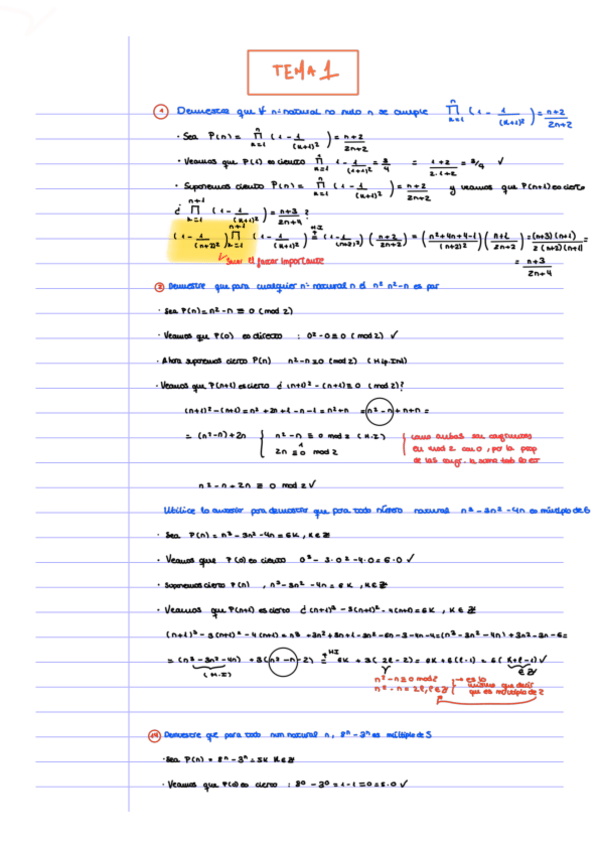 TEMA 1
① Demuestra que ∀ nº natural no nulo n se cumple n ∏ k=1 (1 - 1/(k+1)²) = n+2/2n+2
· Sea P(n) = n ∏ k=1 (1 - 1/(k+1)²) = n+2/2n+2
· Veamos que P(1) es cierto n ∏ k=1 1 - 1/(1+1)² = 3/4 = 1+2/2·1+2 = 3/4 ✓
· Suponemos cierto P(n) = n ∏ k=1 (1 - 1/(k+1)²) = n+2/2n+2 y veamos que P(n+1) es cierto
¿ n+1 ∏ k=1 (1 - 1/(k+1)²) = n+3/2n+4 ?
(1 - 1/(n+2)²) n+1 ∏ k=1 (1 - 1/(k+1)²) =HI (1 - 1/(n+2)²) (n+2/2n+2) = (n²+4n+4-1/(n+2)²) (n+2/2n+2) = (n+3)(n+1)/2(n+2)(n+1) =
= n+3/2n+4
el factor importante
Demuestre que para cualquier nº natural n el nº n²-n es par
· Sea P(n) = n²-n ≡ 0 (mod 2)
· Veamos que P(0) es directo : 0²-0≡0 (mod 2) ✓
· Ahora suponemos cierto P(n) n²-n≡0 (mod 2) (Hip.Ind)
· Veamos que P(n+1) es cierto ¿ (n+1)² - (n+1) ≡ 0 (mod 2)?
(n+1)² - (n+1) = n² + 2n + 1 - n - 1 = n²+n = n²-n + n+n =
= (n²-n) + 2n { n²-n ≡ 0 mod 2 (H.I) { como ambas son congruentes
2n ≡ 0 mod 2 con mod 2 con 0, por la prop
de las congr. la suma tab lo es
n²-n+2n ≡ 0 mod 2 ✓
Utilice lo anterior para demostrar que para todo número natural n³-3n²-4n es múltiplo de 6
· Sea P(n) = n³-3n²-4n = 6k, k∈ℤ
· Veamos que P(0) es cierto 0³ - 3·0² - 4·0 = 6·0 ✓
· Suponemos cierto P(n) , n³-3n²-4n = 6k, k∈ℤ
· Veamos que P(n+1) es cierto ¿ (n+1)³ - 3(n+1)² - 4(n+1) = 6k , k∈ℤ
(n+1)³ - 3(n+1)² - 4(n+1) = n³ + 3n² + 3n + 1 - 3n² - 6n - 3 - 4n - 4 = (n³-3n²-4n) + 3n² - 3n - 6 =
= (n³-3n²-4n) + 3(n²-n-2) =HI 6k + 3(2l-2) = 6k + 6(l-1) = 6(k+l-1) ✓
(H.I) ∈ℤ
n²-n≡0 mod 2 → es lo
n²-n = 2l, l∈ℤ mismo que decir
que es múltiplo de 2
Demuestre que para todo num natural n, 8ⁿ-3ⁿ es múltiplo de 5
· Sea P(n) = 8ⁿ-3ⁿ = 5k k∈ℤ
· Veamos que P(0) es cierto : 8⁰ - 3⁰ = 1-1 = 0 = 5·0 ✓